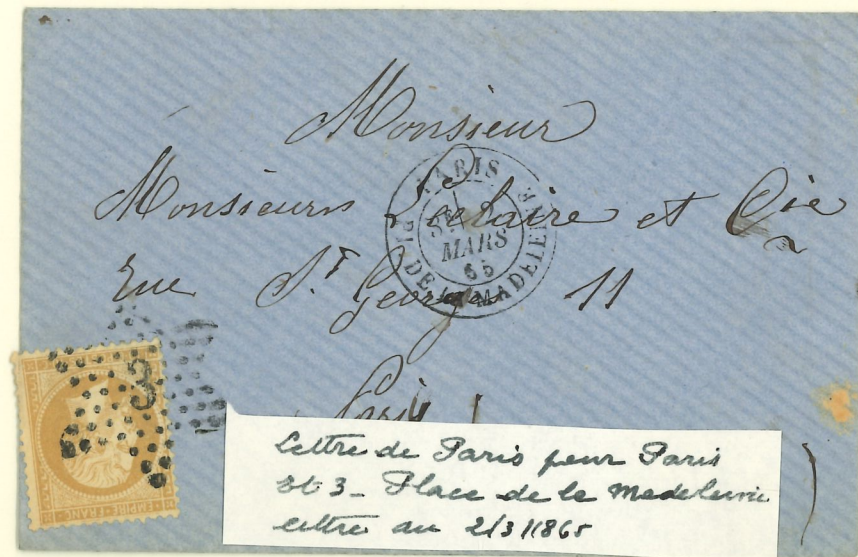 Monsieur
Monsieurs Leclaire et Cie
Rue St Georges 11
Paris
PARIS
PL. DE LA MADELEINE
2
MARS
65
3
EMPIRE FRANC
Lettre de Paris pour Paris
Et 3 - Place de la Madeleine
lettre du 2/3/1865